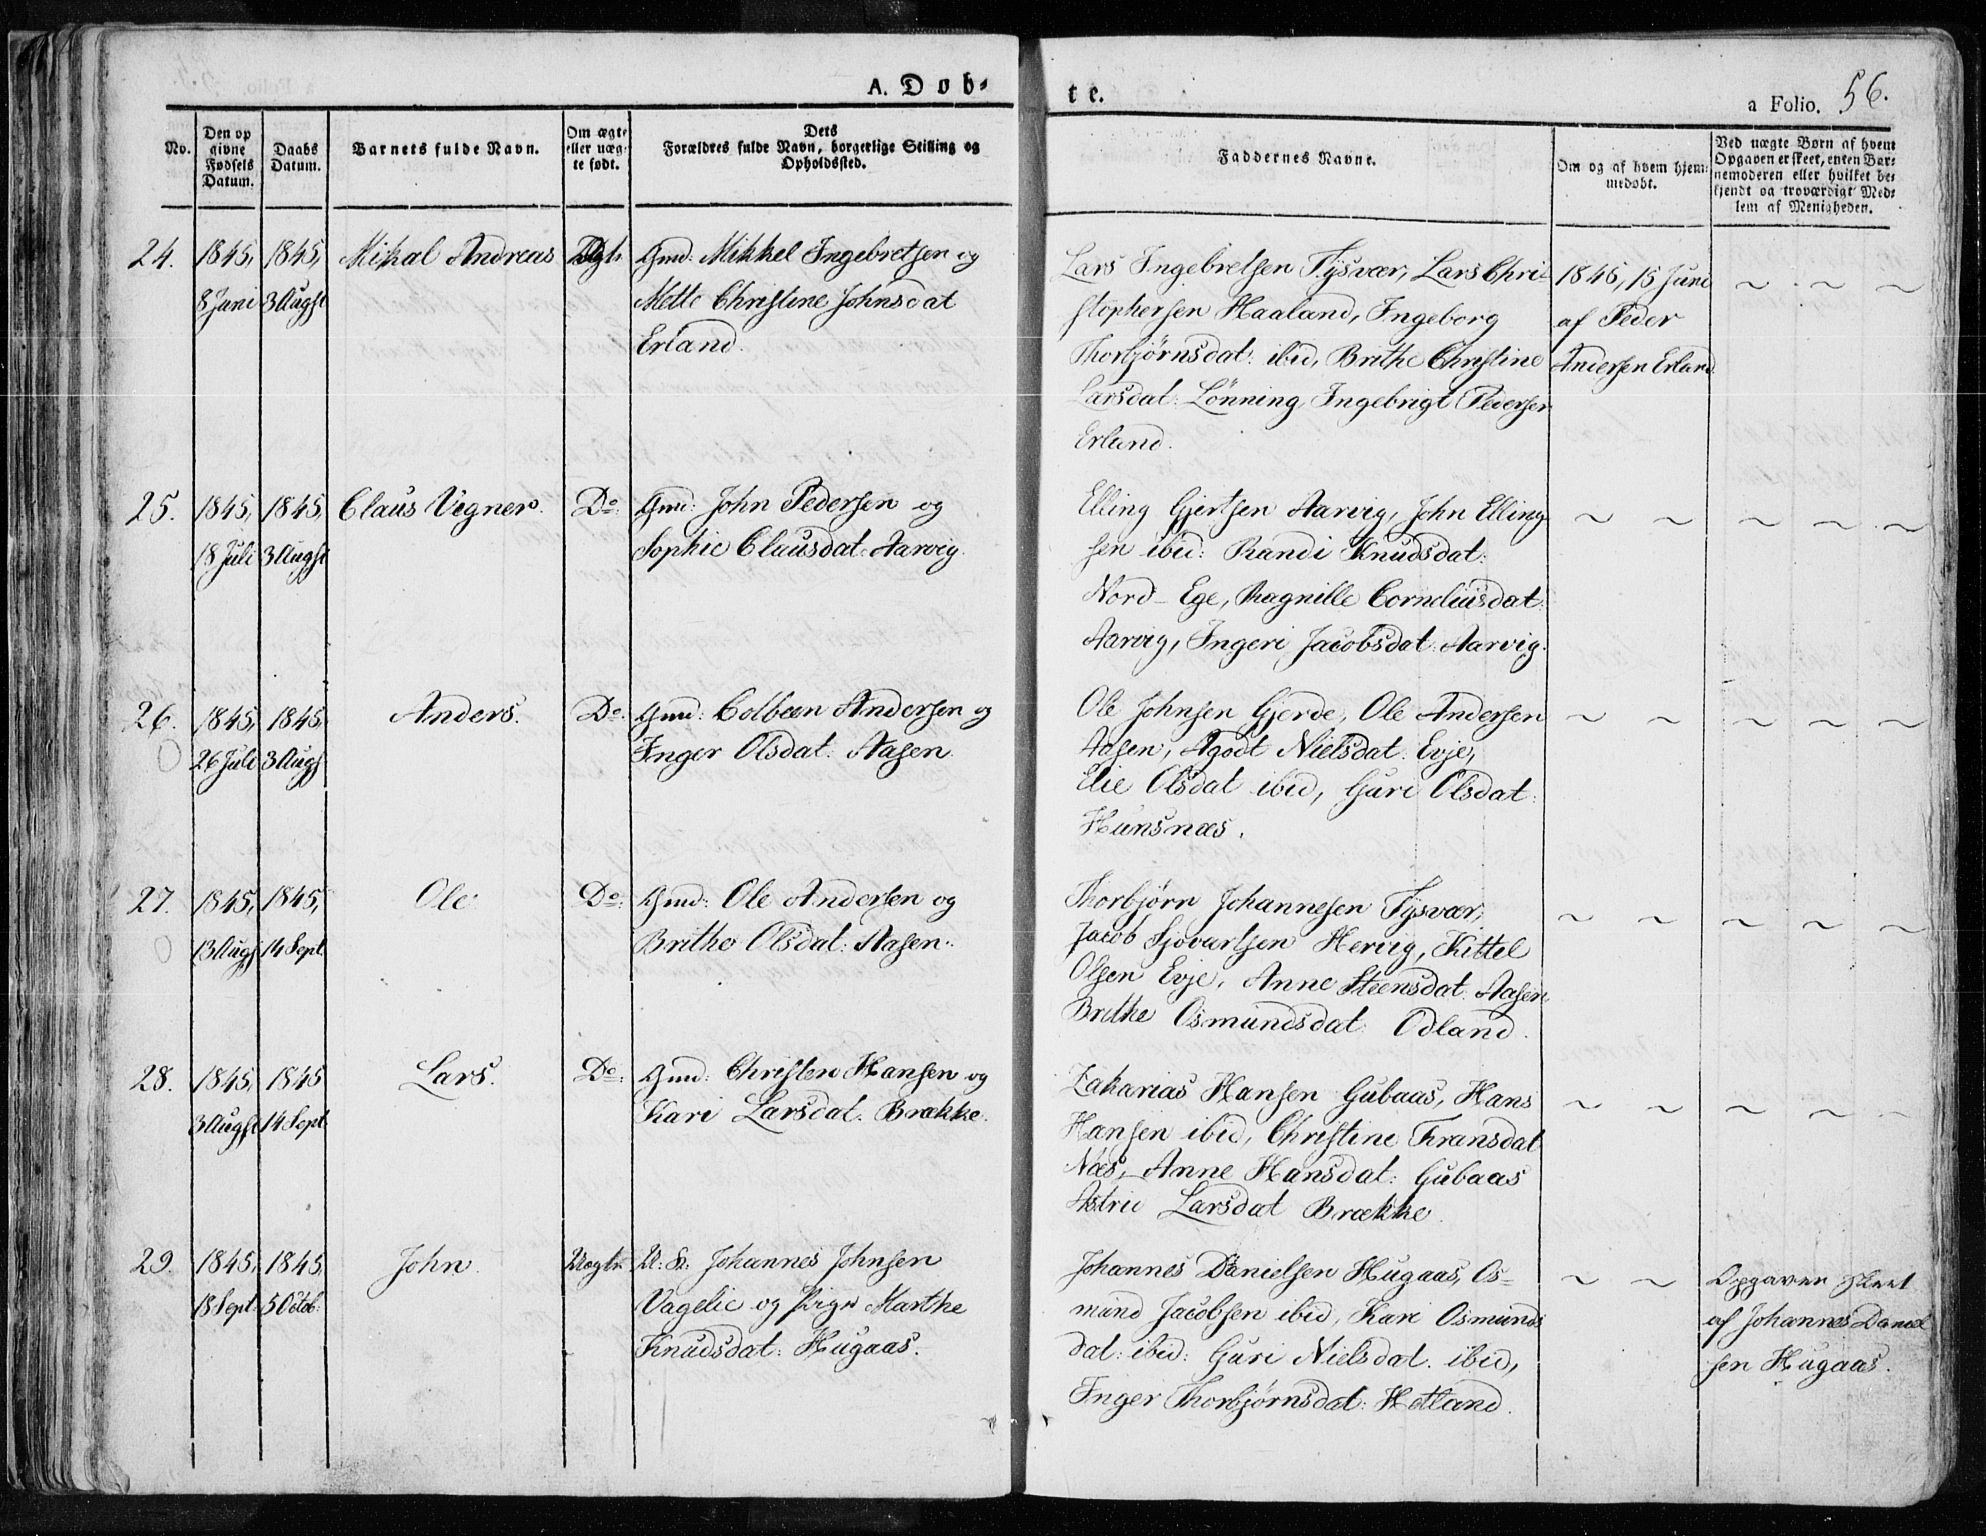 A. Døb-
te.
a Folio. 56.
No.
Den op
givne
Fødsels
Datum.
Daabs
Datum.
Barnets fulde Navn.
Om ægte
eller uæg-
te født.
Dets
Forældres fulde Navn, borgerlige Stilling og
Opholdssted.
Faddernes Navne.
Om og af hvem hjem-
medøbt.
Ved uægte Børn af hvem
Opgaven er skeet, enten Bar-
nemoderen eller hvilket be-
kjendt og troværdigt Med-
lem af Menigheden.
24.
1845,
8 Juni
1845,
3 Augst
Mikal Andreas
Ægt.
Gmd: Mikkel Ingebretsen og
Mette Christine Johnsdat
Erland.
Lars Ingebretsen Tysvær, Lars Chri-
stophersen Haaland, Ingeborg
Thorbjørnsdat: ibid, Brithe Christine
Larsdat: Lønning, Ingebrigt Pedersen
Erland.
1845, 15 Juni
af Peder
Andersen Erland.
~ ~ ~
25.
1845,
18 Juli
1845,
3 Augst
Claus Vegner.
Do:
Gmd: John Pedersen og
Sophie Clausdat: Aarvig.
Elling Gjertsen Aarvig, John Elling-
sen ibid: Randi Knudsdat:
Nord-Ege, Ragnille Corneliusdat:
Aarvig, Ingeri Jacobsdat: Aarvig.
~ ~ ~ ~ ~
26.
1845,
26 Juli
1845,
3 Augs
Anders.
Do:
Gmd: Colbeen Andersen og
Inger Olsdat: Aasen.
Ole Johnsen Gjerde, Ole Andersen
Aasen, Agodt Nielsdat: Evje,
Elie Olsdat ibid, Guri Olsdat:
Hunsnæs.
~ ~ ~ ~ ~
27.
1845,
13 Augs
1845,
14 Sept.
Ole
Do:
Gmd: Ole Andersen og
Brithe Olsdat: Aasen.
Thorbjørn Johannesen Tysvær,
Jacob Sjovartsen Hervig, Kittel
Olsen Evje, Anne Steensdat: Aasen,
Brithe Osmundsdat: Odland.
~ ~ ~ ~ ~
28.
1845,
3 Augst
1845
14 Sept
Lars.
Do:
Gmd: Christen Hansen og
Kari Larsdat: Brække.
Zakarias Hansen Gubaas, Hans
Hansen ibid, Christine Fransdat
Næs, Anne Hansdat: Gubaas
Astrie Larsdat Brække.
~ ~ ~ ~ ~
29.
1845,
18 Sept:
1845,
5 Octob:
John.
Uægte.
U: K: Johannes Johnsen
Vagelie og Pige Marthe
Knudsdat: Hugaas.
Johannes Danielsen Hugaas, Os-
mund Jacobsen ibid, Kari Osmunds
dat: ibid: Guri Nielsdat: ibid,
Inger Thorbjørnsdat: Hetland.
~ ~
Opgaven skeet
af Johannes Daniel
sen Hugaas.